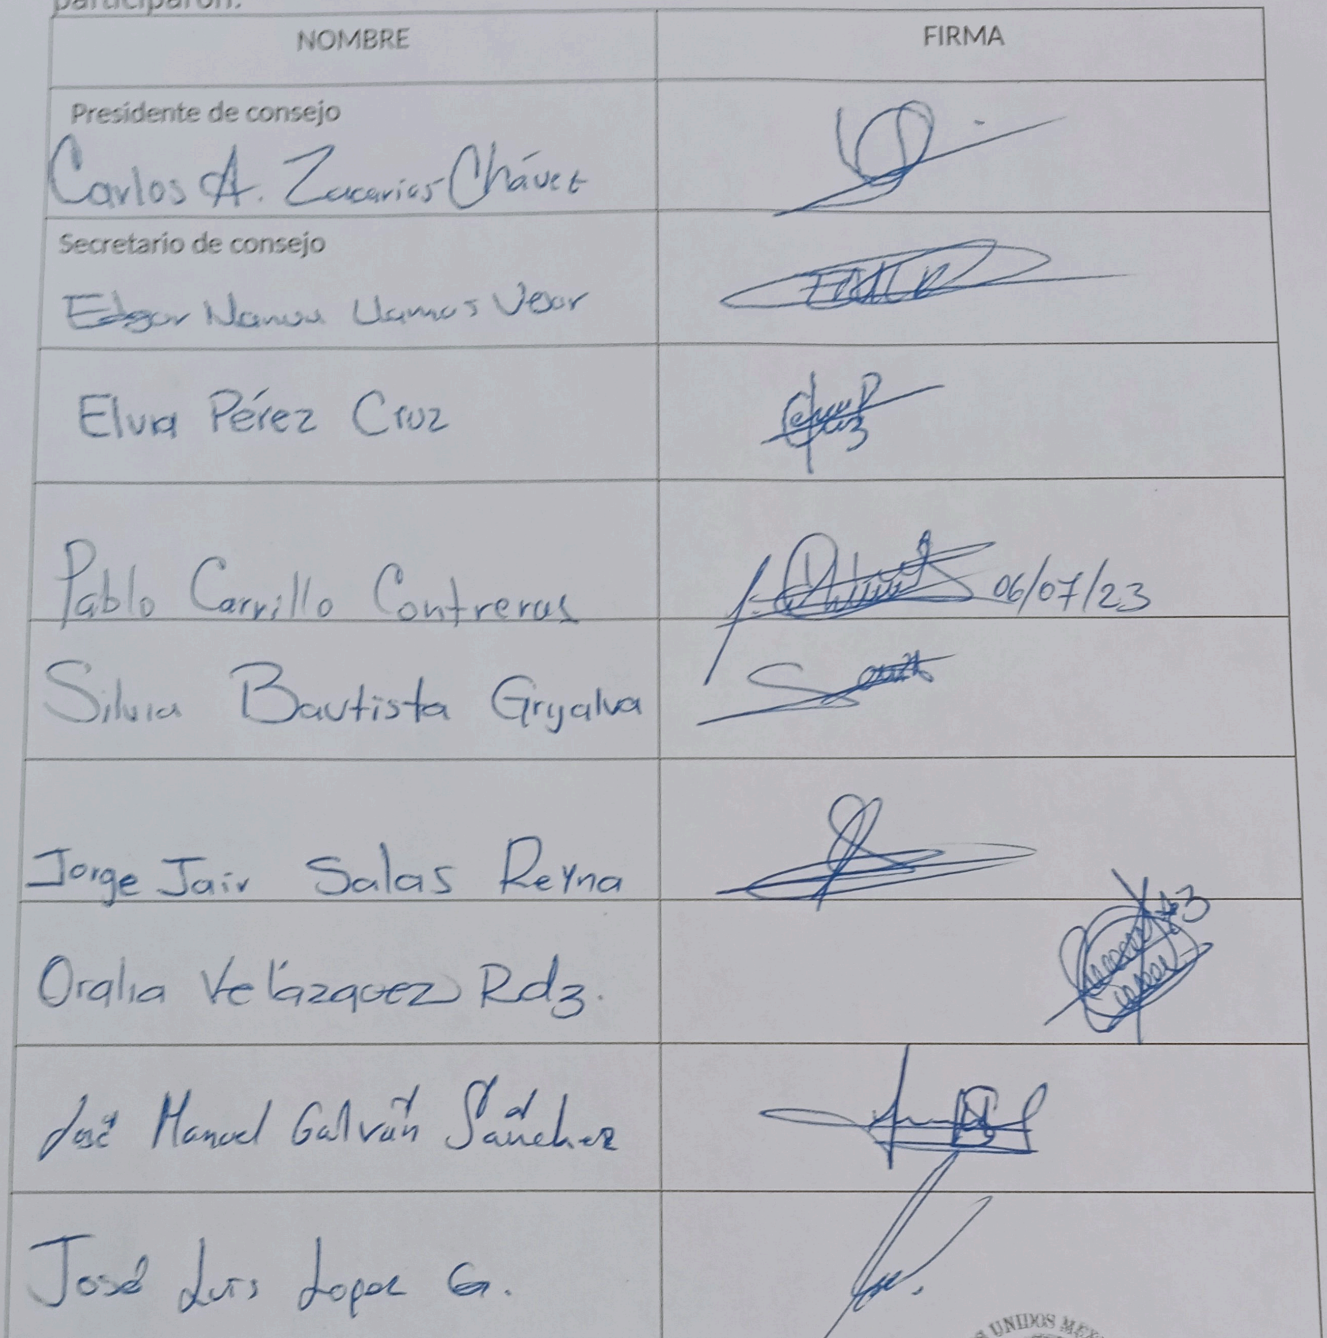 participaron.
NOMBRE FIRMA
Presidente de consejo
Carlos A. Zacarias Chávez
Secretario de consejo
Edgar Llamas
Elvia Pérez Cruz
Pablo Carrillo Contreras 06/07/23
Silvia Bautista Gryalva
Jorge Jair Salas Reyna
Oralia Velázquez Rdz.
José Manuel Galván Sánchez
José Luis Lopez G.
UNIDOS